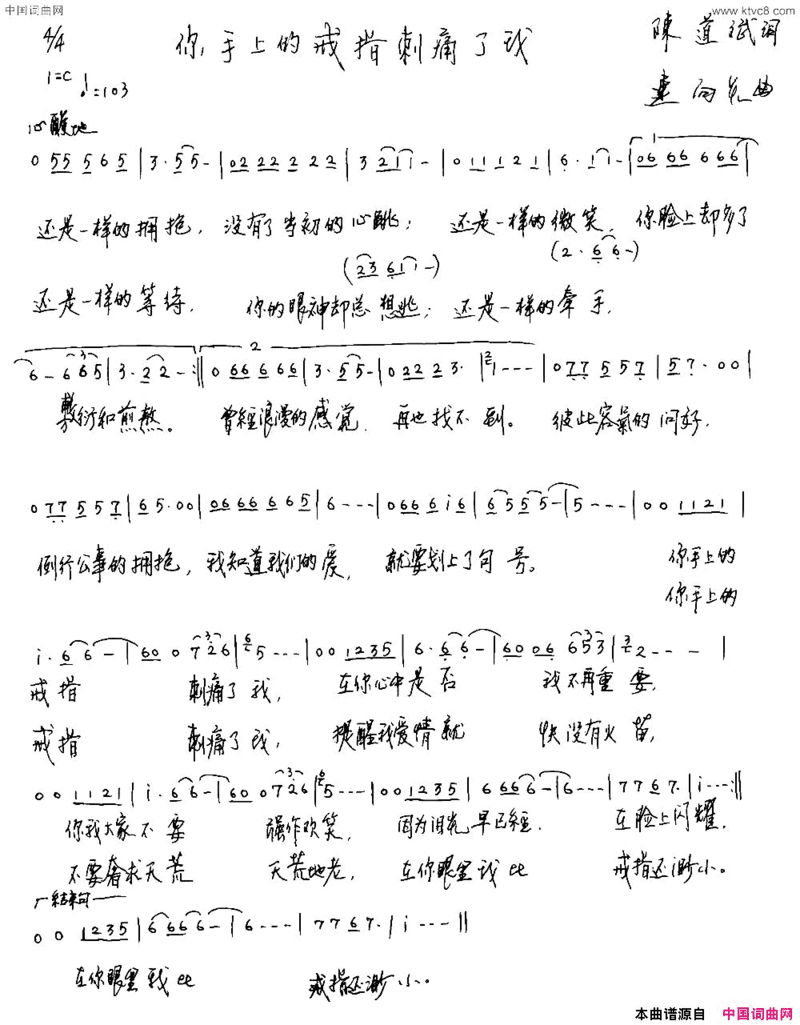 中国词曲网
www.ktvc8.com
4/4 你手上的戒指刺痛了我 陳道斌詞
1=C ♩=103 曲
心酸地
0 55 5 6 5 | 3· 5 5 - | 02 22 2 22 | 3 2 1 1 - | 0 1 1 1 2 1 | 6· 1 1 - | 06 66 6 66 |
还是一样的拥抱，没有了当初的心跳；还是一样的微笑，你脸上却多了
(2 3 6 1 1 -) (2· 6 6 -)
还是一样的等待，你的眼神却总想逃；还是一样的牵手，
6 - 6 6 5 | 3· 2 2 - :|| 0 66 6 6 6 | 3· 5 5 - | 0 2 2 2 3· | 1 - - - | 0 77 5 5 7 | 5 7· 0 0 |
敷衍和煎熬。曾經浪漫的感覺，再也找不到。彼此客氣的问好，
0 77 5 5 7 | 6 5· 0 0 | 06 66 6 6 5 | 6 - - - | 0 6 6 6 i 6 | 6 5 5 5 - | 5 - - - | 0 0 1 1 2 1 |
例行公事的拥抱，我知道我们的爱，就要划上了句号。你手上的
你手上的
i· 6 6 - | 6 0 0 7 2 6 | 5 - - - | 0 0 1 2 3 5 | 6· 6 6 - | 6 0 0 6 6 5 3 | 2 - - - |
戒指 刺痛了我，在你心中是否 我不再重要，
戒指 刺痛了我，提醒我爱情就 快没有火苗，
0 0 1 1 2 1 | i· 6 6 - | 6 0 0 7 2 6 | 5 - - - | 0 0 1 2 3 5 | 6 6 6 6 - | 6 - - - | 7 7 6 7· | i - - - :||
你我大家不要 强作欢笑，因为泪光早已經，在脸上闪耀，
不要奢求天荒 天荒地老，在你眼里我比 戒指还渺小。
结束句
0 0 1 2 3 5 | 6 6 6 6 - | 6 - - - | 7 7 6 7· | i - - - ||
在你眼里我比 戒指还渺小。
本曲谱源自 中国词曲网